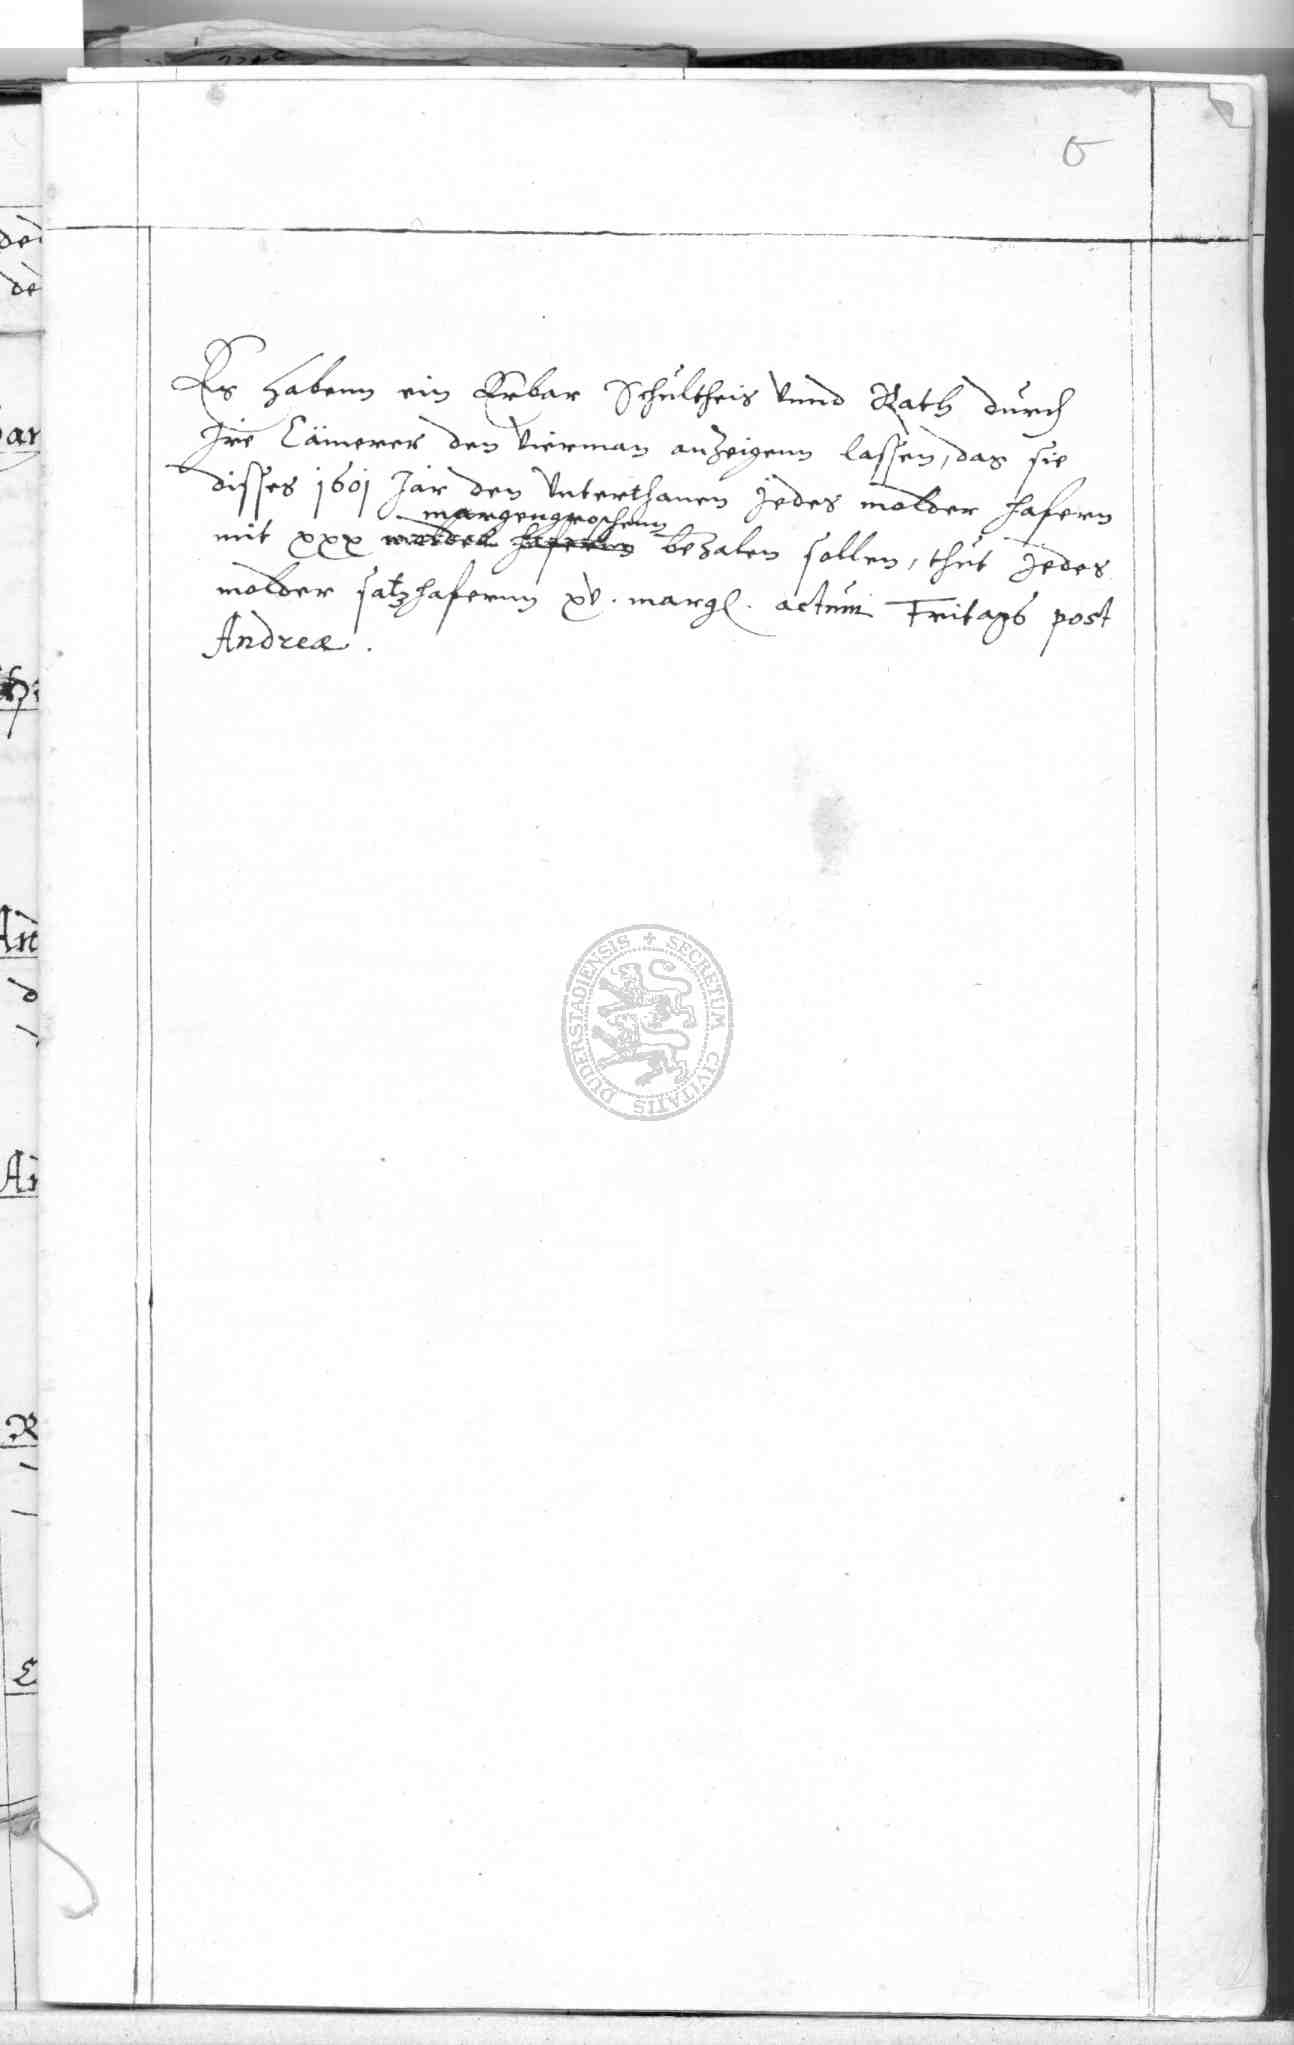 6
Es habenn ein Erbar Schultheis vnnd Rath durch
Jre Cämerer den vierman anzeigenn lassen, das sie
disses 1601 Jar den vnterthanen Jedes molder hafern
margengroschenn
mit xxx molder hafernn bezalen sollen, thut Jedes
molder saltzhafernn xv. margl. actum Fritags post
Andreæ.
SECRETUM CIVITATIS DUDERSTADIENSIS